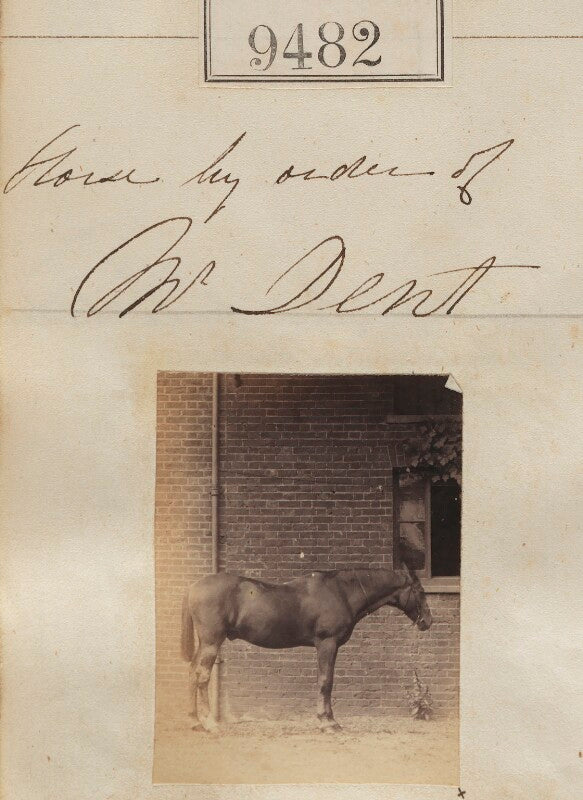 9482
Horse by order of
Mr Dent